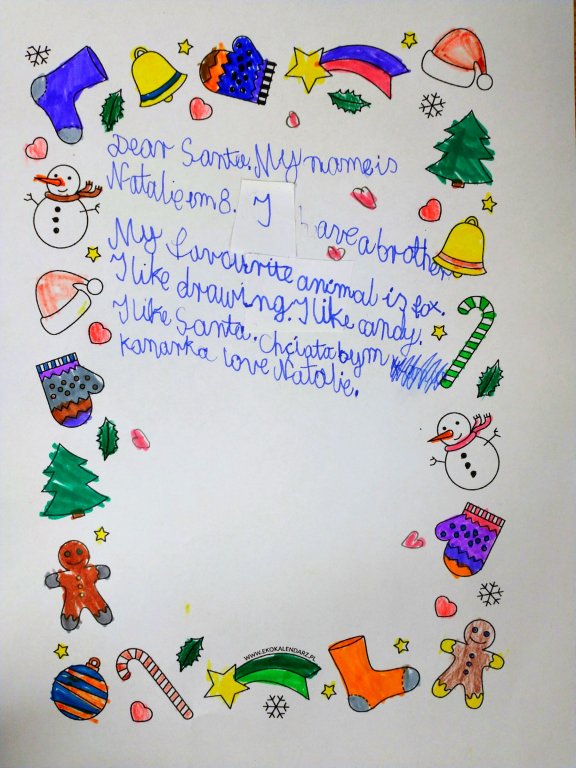 Dear Santa. My name is
Natalie im 8. I have a brother
My favourite animal is fox.
I like drawing. I like candy.
I like Santa. Chciała bym
kanarka love Natalie.
WWW.EKOKALENDARZ.PL